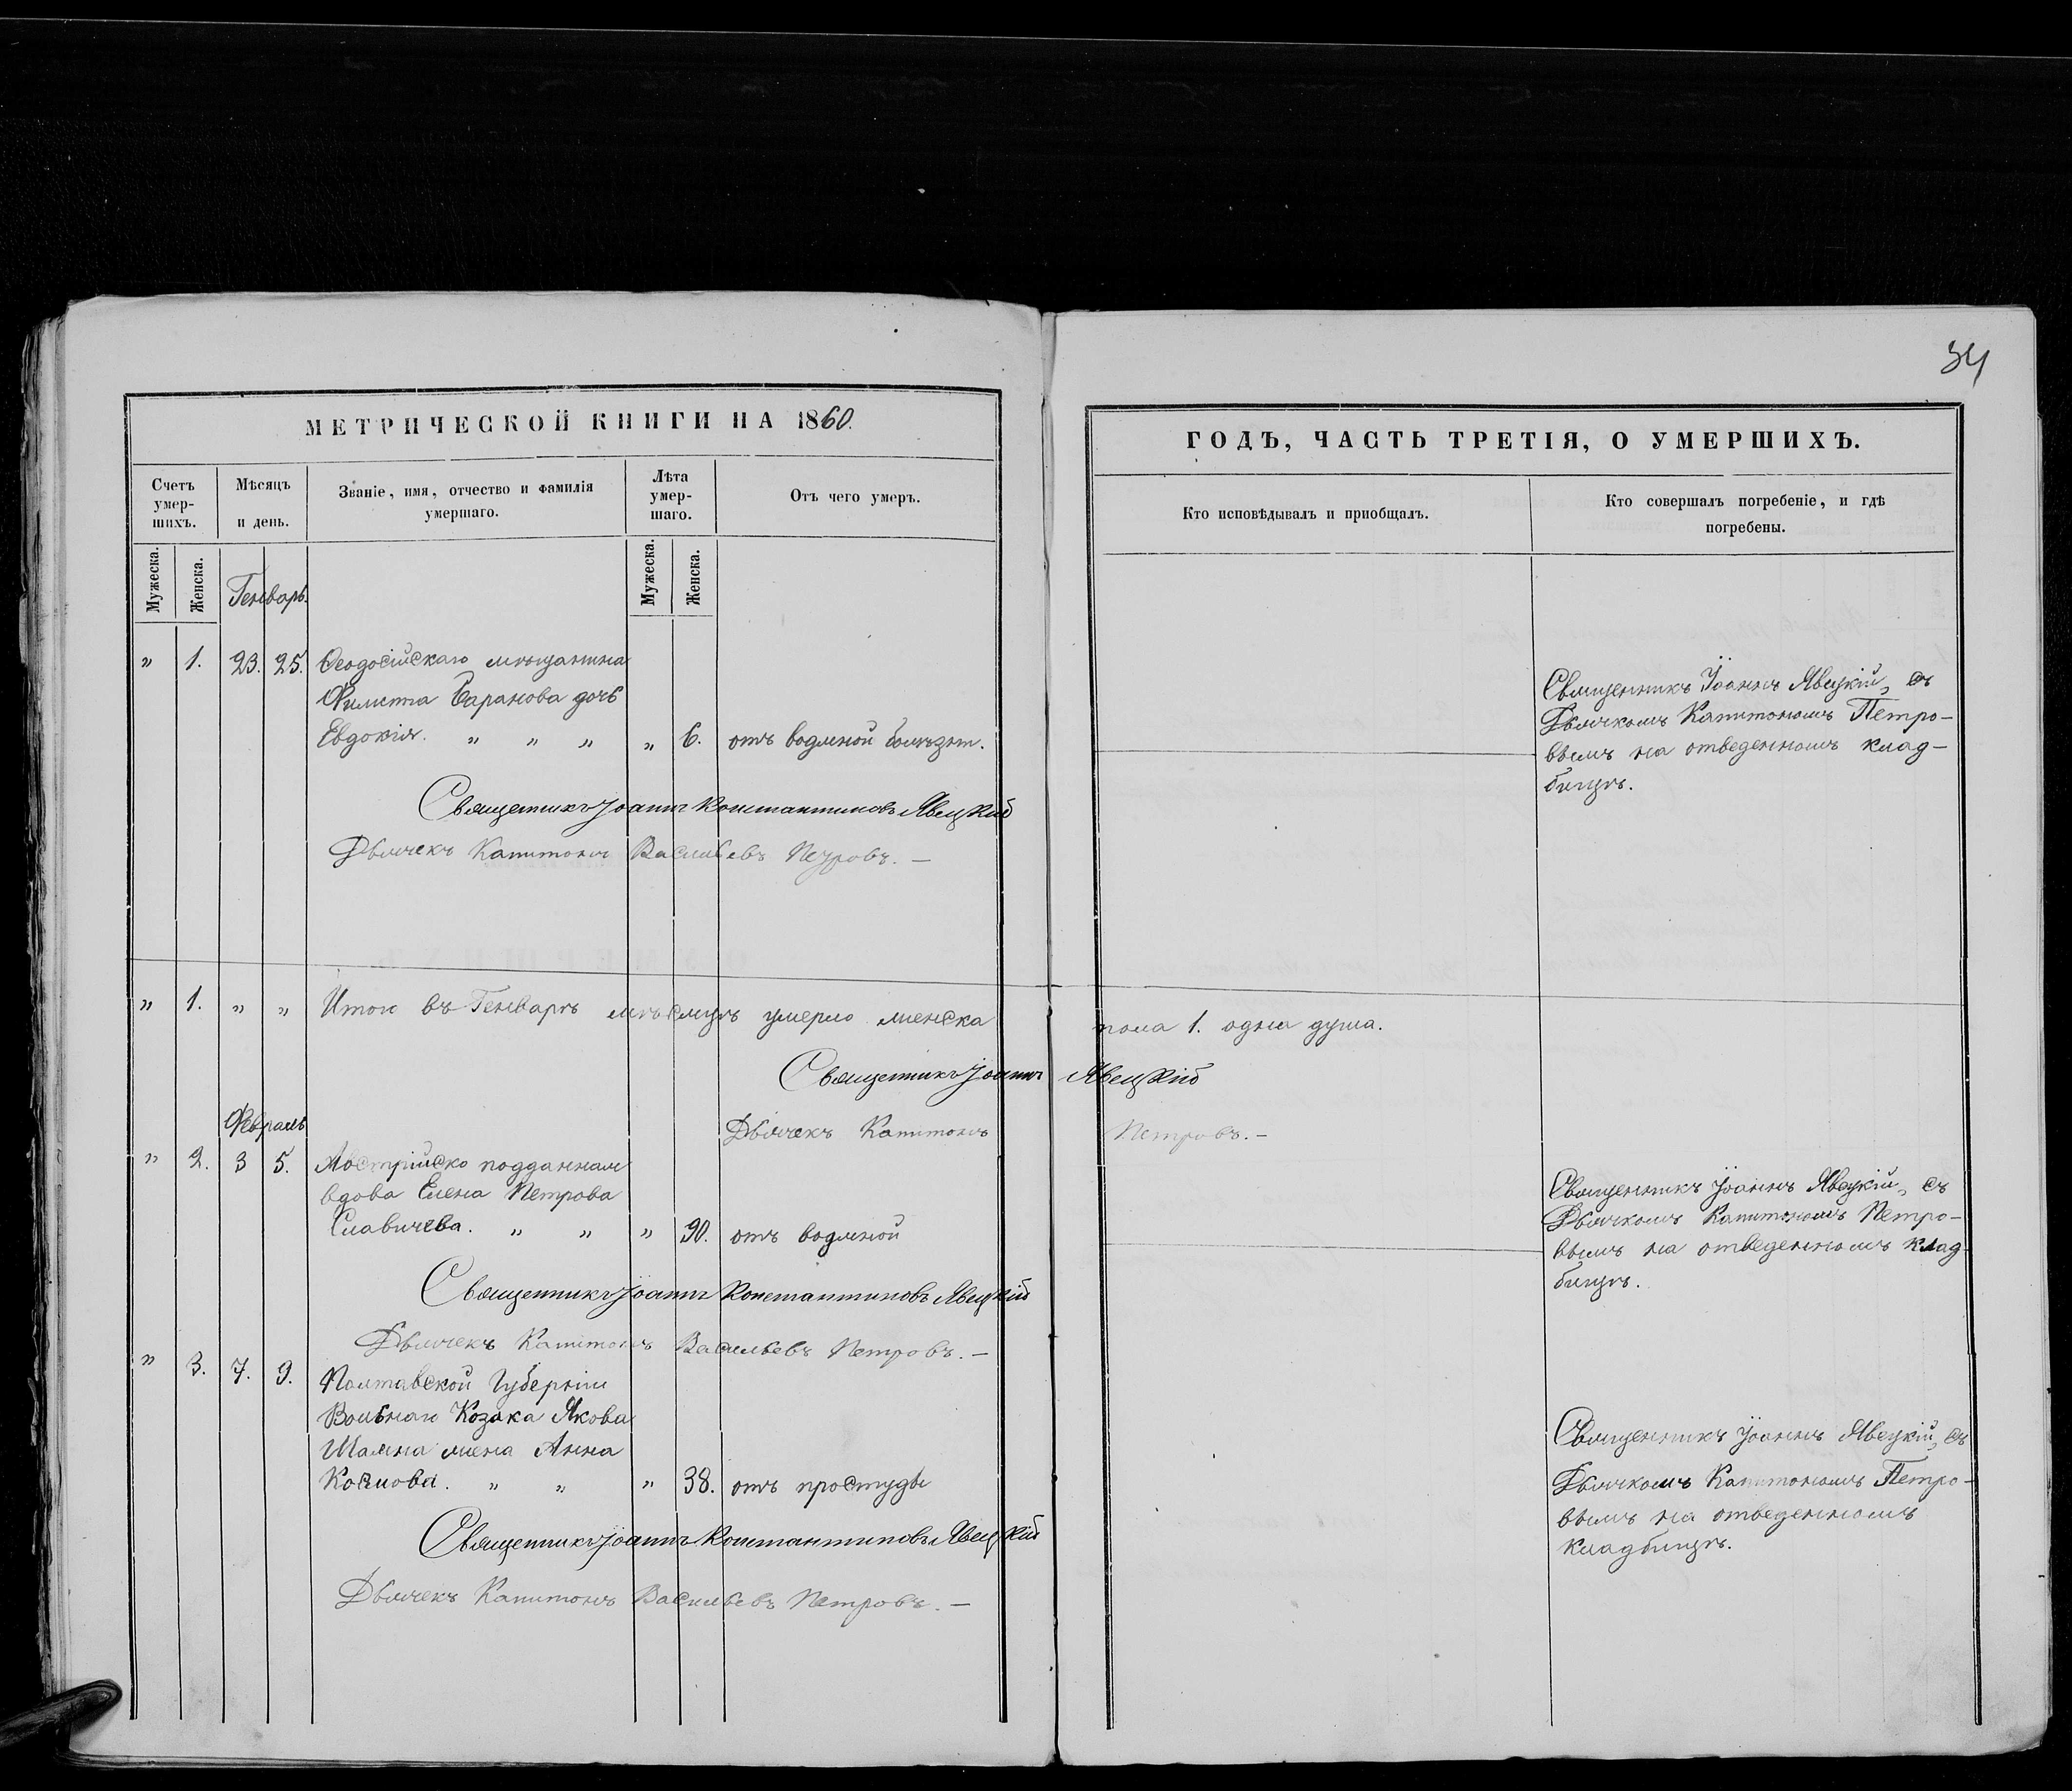 34
МЕТРИЧЕСКОЙ КНИГИ НА 1860.
ГОДЪ, ЧАСТЬ ТРЕТІЯ, О УМЕРШИХЪ.
Счетъ умер-шихъ.
Мѣсяцъ и день.
Званіе, имя, отчество и фамилія умершаго.
Лѣта умер-шаго.
Отъ чего умеръ.
Кто исповѣдывалъ и приобщалъ.
Кто совершалъ погребеніе, и гдѣ погребены.
Мужеска. Женска. Мужеска. Женска.
Генварь.
" 1. 23. 25. Ѳеодосійскаго мѣщанина
Филипа Баранова дочь
Евдокія. " " " " 6. отъ водяной болѣзни.
Священникъ Іоаннъ Явецкій, съ
Дьячкомъ Капитономъ Петро-
вымъ на отведенномъ клад-
бищѣ.
Священникъ Іоаннъ Константиновъ Явецкій
Дьячекъ Капитонъ Васильевъ Петровъ. —
" 1. " " Итого въ Генварѣ мѣсяцѣ умерло женска пола 1. одна душа.
Священникъ Іоаннъ Явецкій
Дьячекъ Капитонъ Петровъ. —
Февраль
" 2. 3 5. Австрійско подданная
вдова Елена Петрова
Славичева. " " " 90. отъ водяной
Священникъ Іоаннъ Явецкій, съ
Дьячкомъ Капитономъ Петро-
вымъ на отведенномъ клад-
бищѣ.
Священникъ Іоаннъ Константиновъ Явецкій
Дьячекъ Капитонъ Васильевъ Петровъ. —
" 3. 7. 9. Полтавской Губерніи
Вольнаго Козака Якова
жена Анна
Козмова. " " " 38. отъ простуды
Священникъ Іоаннъ Явецкій, съ
Дьячкомъ Капитономъ Петро-
вымъ на отведенномъ
кладбищѣ.
Священникъ Іоаннъ Константиновъ Явецкій
Дьячекъ Капитонъ Васильевъ Петровъ. —